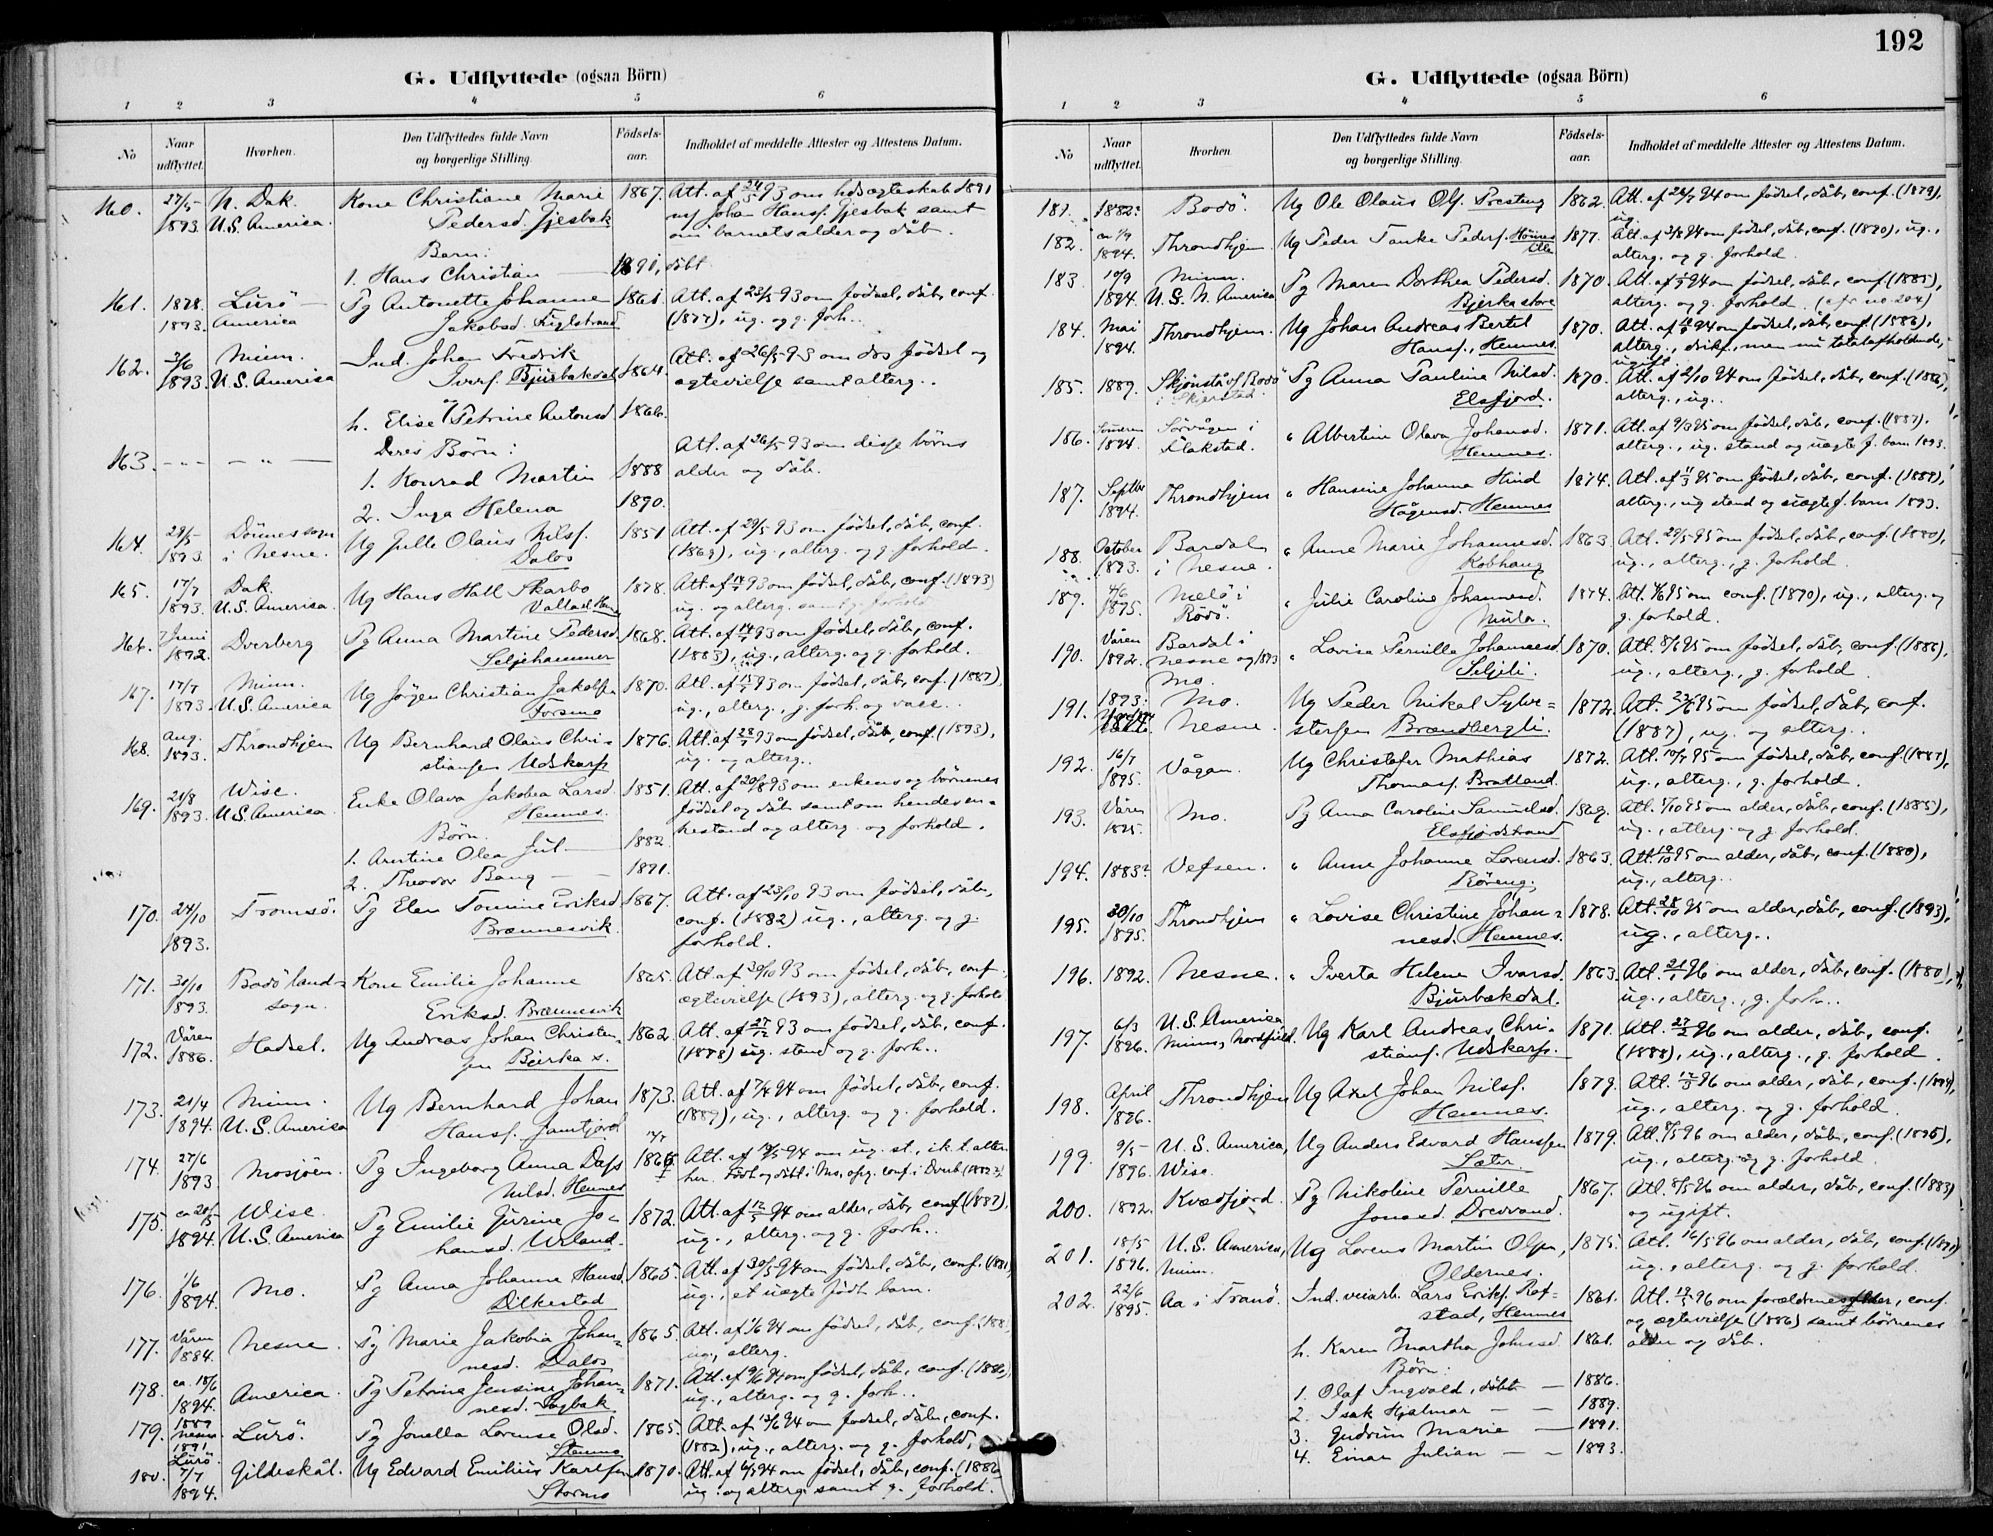 G. Udflyttede (ogsaa Börn)
1 2 3 4 5 6
No
Naar udflyttet.
Hvorhen.
Den Udflyttedes fulde Navn
og borgerlige Stilling.
Födsels-
aar.
Indholdet af meddelte Attester og Attestens Datum.
160. 27/5 N. Dak. Kone Christiane Marie 1867. Att. af 24/5 93 om hds ægteskab 1891
1893. U.S. America. Pedersd. Gjesbak m/ Johan Hansf. Gjesbak samt
Barn: om barnets alder og dåb.
1. Hans Christian — 1891, döbt
161. 1878. Lurö — Pg Antonette Johanne 1861 Att. af 23/5 93 om födsel, dåb, conf.
1893. America Jakobsd. (1877), ug. og g. forh..
162. 2/6 Minn. Ind. Johan Fredrik 1864. Att. af 26/5 93 om ds födsel og
1893. U.S. America Iverf. Bjurbækdal ægtevielse samt alterg..
h. Elise Petrine Antonsd 1866.
163. Deres Börn: Att. af 26/5 93 om disse börns
1. Konrad Martin 1888 alder og dåb.
2. Inga Helena 1890.
164. 29/5 Dönnes sogn Ug Julle Olaus Nilsf. 1851 Att. af 29/5 93 om födsel, dåb, conf.
1893. i Nesne. Dalos (1869), ug., alterg. og g. forhold.
165. 17/7 Dak. Ug Hans Hall Skarbo 1878. Att. af 14/7 93 om födsel, dåb, conf. (1893)
1893. U.S. America. ug. og alterg. samt g. forhold
166. Juni Dverberg Pg Anna Martine Pedersd. 1868. Att. af 14/7 93 om födsel, dåb, conf.
1892. Seljehammer (1883), ug., alterg. og g. forhold.
167. 17/7 Minn. Ug Jörgen Christian Jakobsen 1870. Att. af 15/7 93 om födsel, dåb, conf. (1887),
1893. U.S. America Forsmo ug., alterg., g. forh. og vacc..
168. Aug. Throndhjem Ug Bernhard Olaus Chri- 1876. Att. af 28/7 93 om födsel, dåb, conf. (1893),
1893. stiansen Udskarp ug. og alterg..
169. 21/8 Wisc. Enke Olava Jakobea Larsd. 1851. Att. af 20/8 93 om enkens og börnenes
1893. U.S. America Hemnes. födsel og dåb samt om hendes en-
Börn. kestand og alterg. og forhold.
1. Arntine Olea Jul — 1882
2. Theodor Bang — 1891.
170. 24/10 Tromsö. Pg Elen Tomine Eriksd. 1867. Att. af 23/10 93 om födsel, dåb,
1893. Brennesvik. conf. (1882) ug., alterg. og g.
forhold.
171. 30/10 Bodö land- Kone Emilie Johanne 1865. Att. af 30/10 93 om födsel, dåb, conf.
1893. sogn. Eriksd. Brennesvik ægtevielse (1893), alterg. og g. forhold
172. Våren Hadsel. Ug Andreas Johan Christen- 1862. Att. af 27/12 93 om födsel, dåb, conf.
1886. sen Bjerka s. (1878) ug. stand og g. forh..
173. 21/4 Minn. Ug Bernhard Johan 1873. Att. af 7/4 94 om födsel, dåb, conf.
1894. U.S. America Hansf. Jamtjord (1889), ug., alterg. og g. forhold.
174. 27/6 Mosjöen. Pg Ingeborg Anna Dass Att. af 94 om ug. st., ik. t. alter
1893 Nilsd. Hemnes her. Födt og döbt i Mo,
175. ca 20/5 Wisc. Pg Emilie Jo- 1872. Att. af 12/5 94 om alder, dåb, conf. (1887),
1894. U.S. America hansd. Urland. ug., alterg. og g. forh..
176. 1/6 Mo. Pg Anna Johanne Hansd. 1865. Att. af 30/5 94 om födsel, dåb, conf. (1881)
1894. Dilkestad ug., et uægte födt barn.
177. Våren Nesne. Pg Marie Jakobia Johan- 1865. Att. af 1/6 94 om födsel, dåb, conf.
1884. nesd. Dalos ug., alterg.
178. ca. 18/6 America. Pg Petrina Jensine Johan- 1871. Att. af om födsel, dåb, conf. (1886)
1894. nesd. ug., alterg. og g. forh..
179. 1889 Lurö. Pg Jonella Lorense Olsd. 1865. Att. af 13/6 94 om födsel, dåb, conf.
Nesne 1891 Lurö Stenmo (1882), ug., alterg. og g. forhold.
180. 7/7 1894. Gildeskål. Ug Edvard Emilius Karlsen 1870. Att. af 94 om födsel, dåb, conf. (1886
Stormo ug. og alterg. samt g. forhold.
192
G. Udflyttede (ogsaa Börn)
1 2 3 4 5 6
No
Naar udflyttet.
Hvorhen.
Den Udflyttedes fulde Navn
og borgerlige Stilling.
Födsels-
aar.
Indholdet af meddelte Attester og Attestens Datum.
181. 1882. Bodö. Ug Ole Olaus Olf. Presteng 1862. Att. af 24/7 94 om födsel, dåb, conf. (1879),
ug.
182. ca 1/9 Throndhjem Ug Peder Tanke Pederf. 1877. Att. af 3/8 94 om födsel, dåb, conf. ug.,
1894. alterg. og g. forhold.
183 10/9 Minn. Pg Maren Dorthea Pedersd. 1870. Att. af 94 om födsel, dåb, conf. (1885),
1894 U.S. N. America Bjerka store alterg. og g. forhold. (cfr no 204)
184. Mai Throndhjem. Ug Johan Andreas Bertel 1870. Att. af 94 om födsel, dåb, conf. (1886),
1894. Hansf., Hemnes. alterg., drikf., men nu totalafholdende,
ugift.
185. 1889. Skjönstå i Bodö Pg Anna Pauline Nilsd. 1870. Att. af 2/10 94 om födsel, dåb, conf. (1886),
i Skjerstad. Elsfjord. alterg., ug..
186. Sörvågen i „ Albertine Olava Johansd. 1871. Att. af 9/3 95 om födsel, dåb, conf. (1887).
1894. Flakstad. Hemnes. alterg., ug. stand og uægte f. barn 1893.
187. Septbr Throndhjem „ Hansine Johanna Hind 1874. Att. af 11/3 95 om födsel, dåb, conf. (1889),
1894. Hågensd. Hemnes alterg., ug stand og uægte f. barn 1893.
188. October Bardal „ Anne Marie Johannesd. 1863. Att. 29/5 95 om födsel, dåb, conf. (1880),
1893. i Nesne. Kobhaug ug., alterg., g. forhold.
189. 4/6 Melö i „ Julie Caroline Johannesd. 1874. Att. 95 om conf. (1890), ug., alterg. og
1895. Rödö. Mula. g. forhold.
190. Våren Bardal i „ Lovisa Pernilla Johannesd. 1870. Att. 8/6 95 om födsel, dåb, conf. (1886),
1892. Nesne og 1893 Mo. Seljeli. ug., alterg., g. forhold.
191. 1893. Mo. Ug Peder Nikol Sylve- 1872. Att. 22/6 95 om födsel, dåb, conf.
1894. Nesne. stersen Brændbergli. (1887), ug. og alterg..
192. 16/7 Vågan. Ug Christofer Mathias 1872. Att. 10/7 95 om födsel, dåb, conf. (1887),
1895. Thomasf. Bratland. ug., alterg., g. forhold.
193. Våren Mo. Pg Anna Caroline Samuelsd. 1869. Att. 1/10 95 om alder, dåb, conf. (1885),
1895. Elsfjordstrand ug., alterg. og g. forhold.
194. 1883? Vefsen. „ Anne Johanne Lorensd. 1863. Att. 19/10 95 om alder, dåb, conf. (1880),
Röreng. ug., alterg..
195. 30/10 Throndhjem „ Lovise Christine Johan- 1878. Att. 28/10 95 om alder, dåb, conf. (1893),
1895. nesd. Hemnes. ug., alterg..
196. 1892. Nesne. „ Iverta Helene Ivarsd. 1863. Att. 21/1 96 om alder, dåb, conf. (1880),
Bjurbækdal. ug., alterg., g. forh..
197. 6/3 U.S. America Ug Karl Andreas Chri- 1871. Att. 27/2 96 om alder, dåb, conf.
1896. Minn., Nordfield. stiansf. Udskarp. (1888), ug., alterg., g. forhold.
198. April Throndhjem Ug Axel Johan Nilsf. 1879. Att. 17/3 96 om alder, dåb, conf. (1894),
1896. Hemnes. ug., alterg. og g. forhold.
199. 9/5 U.S. America, Ug Anders Edvard Hanssen 1879. Att. 8/5 96 om alder, dåb, conf. (1895),
1896. Wisc. Sæter. ug., alterg. og g. forhold.
200. 1892. Kvædfjord. Pg Nikoline Pernille 1867. Att. 8/5 96 om alder, dåb, conf. (1883)
Jonasd. Drevvand. og ugift.
201. 18/5 U.S. America, Ug Lorens Martin Olsen, 1875. Att. 16/5 96 om alder, dåb, conf.
1896. Minn. Oldernes. ug., alterg. og g. forhold.
202. 22/6 Aa i Tranö. Ind. veiarb. Lars Eriksf. Röf- 1861. Att. 96 om forældrenes alder, conf.
1895. stad, Hemnes og ægtevielse (1886) samt börnenes
h. Karen Martha Johnsd. 1861. alder og dåb.
Börn:
1. Olaf Ingvald, döbt — 1886.
2. Isak Hjalmar — — 1889.
3. Gudrun Marie — 1891.
4. Einar Julian — — 1893.